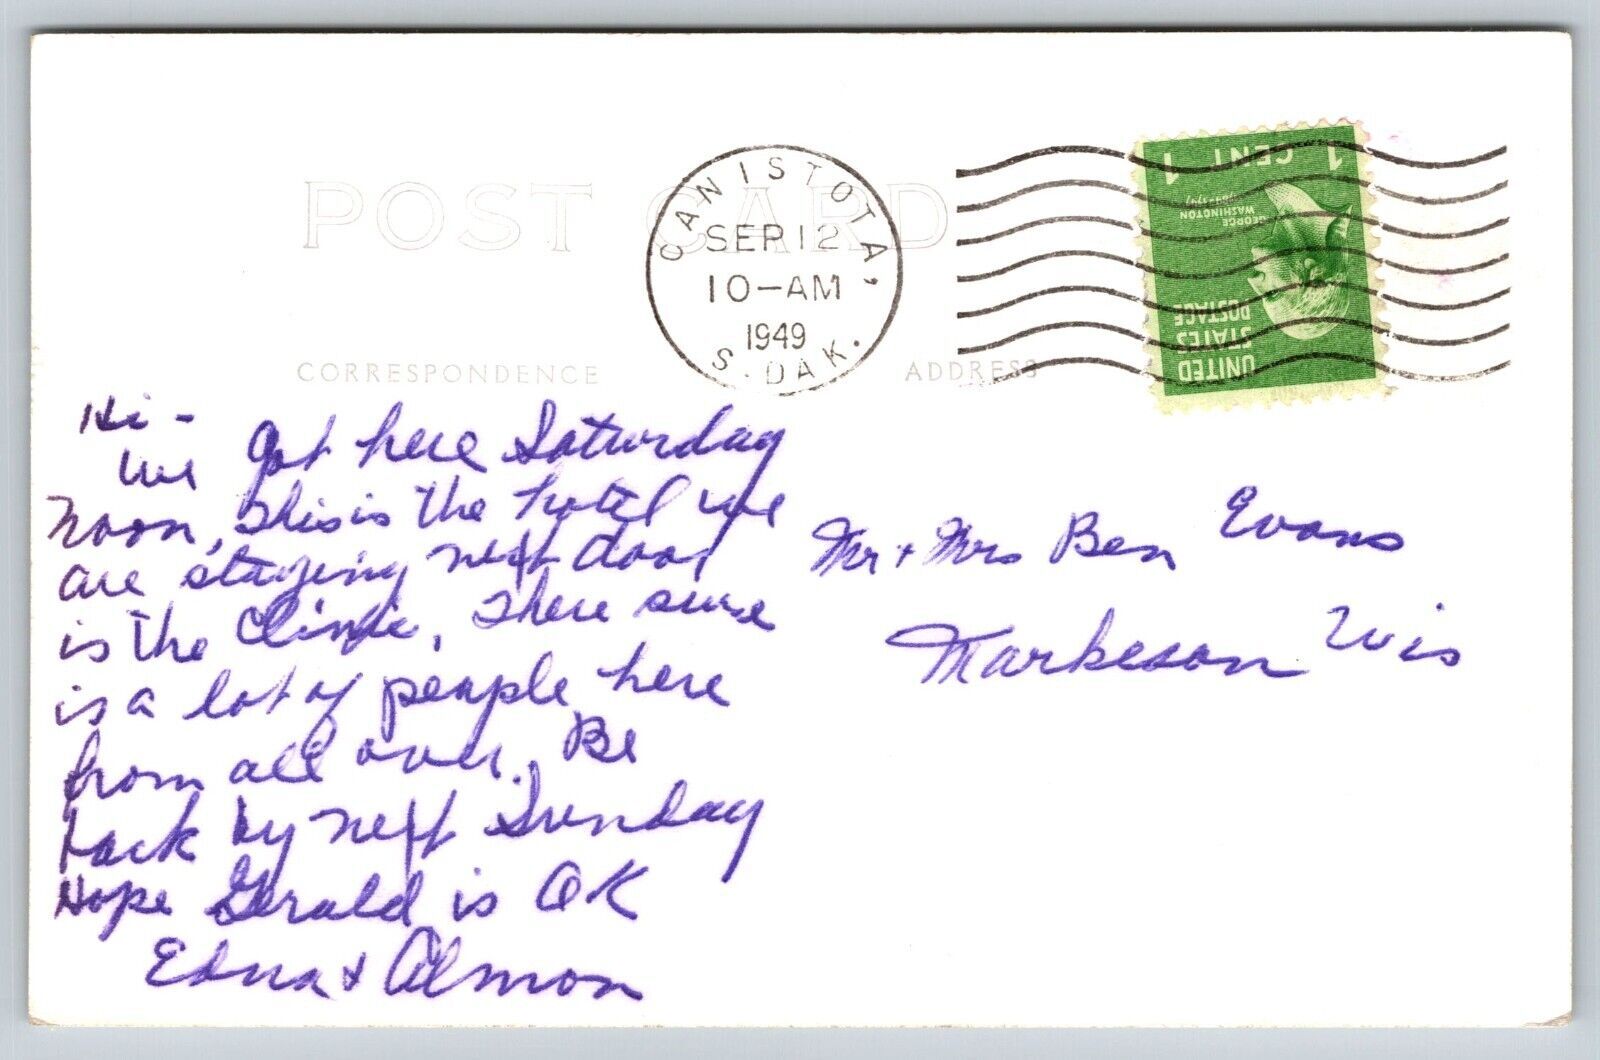 POST CARD
CANISTOTA,
SEP 12
10-AM
1949
S. DAK.
1 CENT 1
GEORGE
WASHINGTON
UNITED
STATES
POSTAGE
CORRESPONDENCE
ADDRESS
Hi -
We got here Saturday
Noon, This is the hotel we
are staying next door
is the Clinic, There sure
is a lot of people here
from all over. Be
back by next Sunday
Hope Gerald is OK
Edna + Almon
Mr + Mrs Ben Evans
Markesan Wis